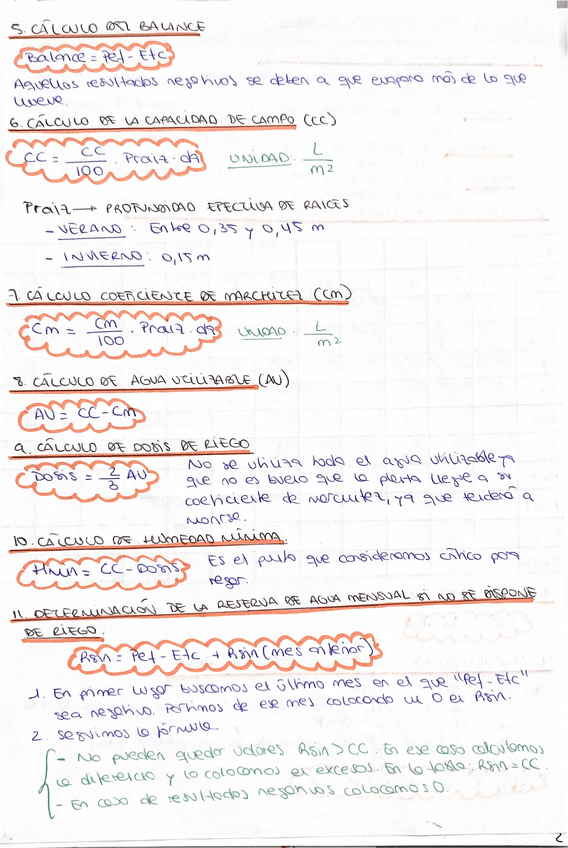 5. CÁLCULO DEL BALANCE
Balance = Pef - Etc
Aquellos resultados negativos se deben a que evapora más de lo que
llueve.
6. CÁLCULO DE LA CAPACIDAD DE CAMPO (CC)
CC = CC/100 · Praiz · da UNIDAD: L/m2
Praiz → PROFUNDIDAD EFECTIVA DE RAICES
- VERANO: Entre 0,35 y 0,45 m
- INVIERNO: 0,15 m
7. CÁLCULO COEFICIENTE DE MARCHITEZ (Cm)
Cm = Cm/100 · Praiz · da UNIDAD: L/m2
8. CÁLCULO DE AGUA UTILIZABLE (AU)
AU = CC - Cm
9. CÁLCULO DE DOSIS DE RIEGO
Dosis = 2/3 AU
No se utiliza toda el agua utilizable ya
que no es bueno que la planta llegue a su
coeficiente de marchitez, ya que tenderá a
morirse.
10. CÁLCULO DE HUMEDAD MÍNIMA.
Hmin = CC - Dosis
Es el punto que consideramos crítico para
regar.
11. DETERMINACIÓN DE LA RESERVA DE AGUA MENSUAL SI NO SE DISPONE
DE RIEGO.
Rsin = Pef - Etc + Rsin (mes anterior)
1. En primer lugar buscamos el último mes en el que "Pef - Etc"
sea negativo. Partimos de ese mes colocando un 0 en Rsin.
2. Seguimos la fórmula.
- No pueden quedar valores Rsin > CC. En ese caso calculamos
la diferencia y lo colocamos en excesos. En la tabla: Rsin = CC.
- En caso de resultados negativos colocamos 0.
2